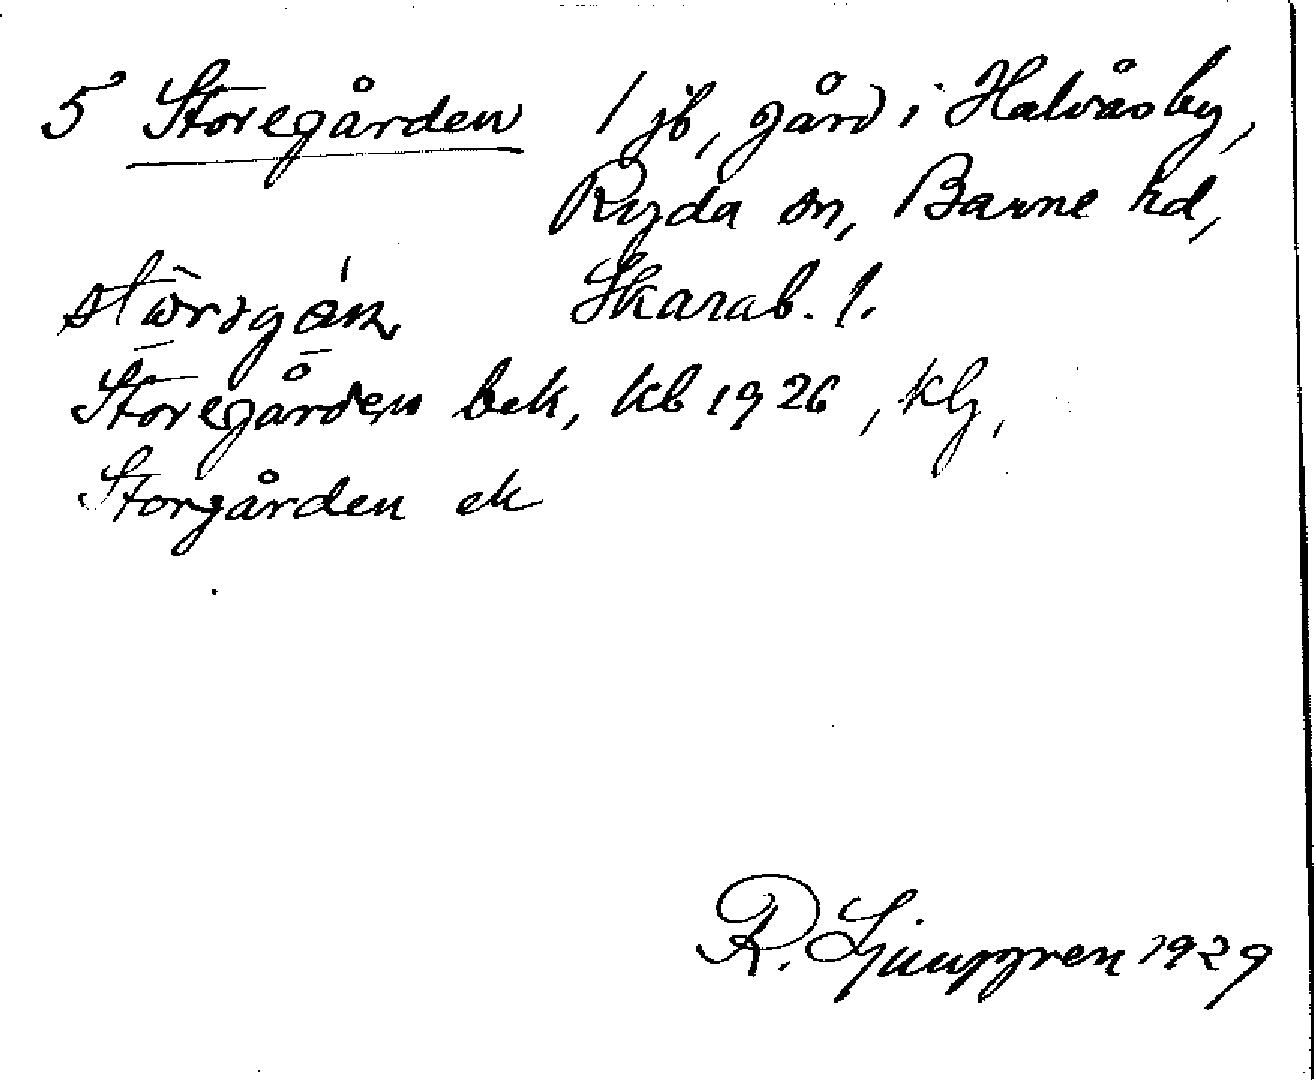 5 Storegården 1 jb, gård i Halvåsby,
Ryda sn, Barne hd,
Skarab. l.
Storegården bek, kb 1926, klj,
Storgården ek
R. Ljunggren 1929